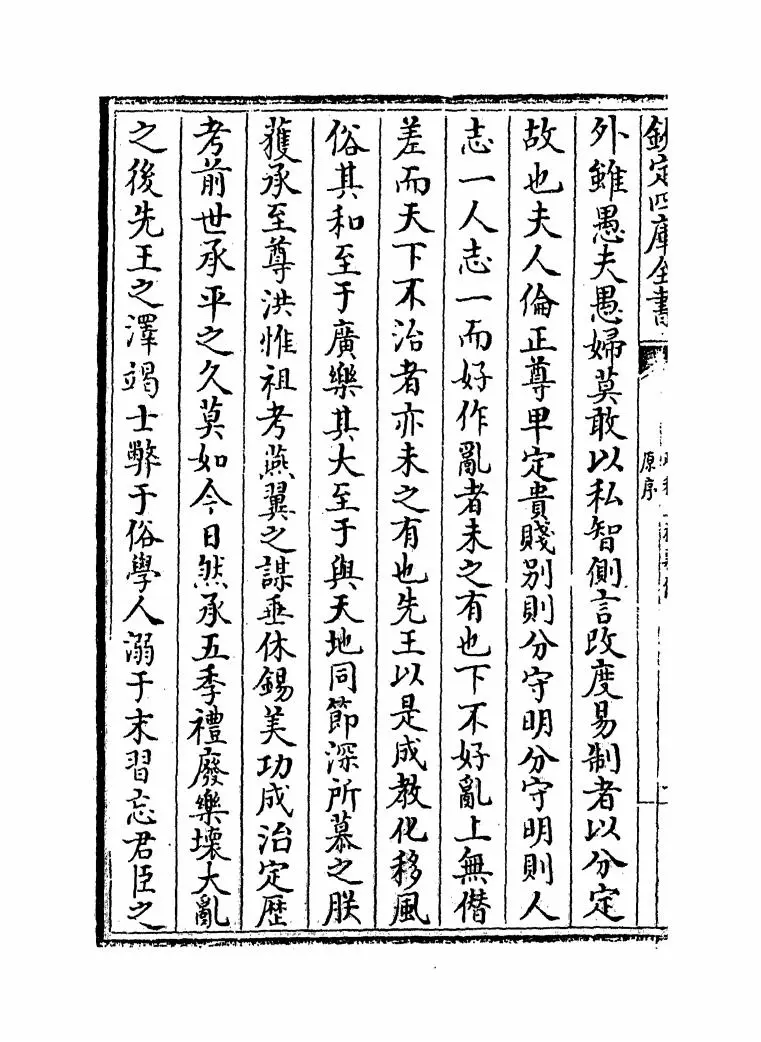 欽定四庫全書
原序
外雖愚夫愚婦莫敢以私智側言改度易制者以分定
故也夫人倫正尊卑定貴賤别則分守明分守明則人
志一人志一而好作亂者未之有也下不好亂上無僭
差而天下不治者亦未之有也先王以是成教化移風
俗其和至于廣樂其大至于與天地同節深所慕之朕
獲承至尊洪惟祖考燕翼之謀垂休錫美功成治定歴
考前世承平之久莫如今日然承五季禮廢樂壊大亂
之後先王之澤竭士弊于俗學人溺于末習忘君臣之